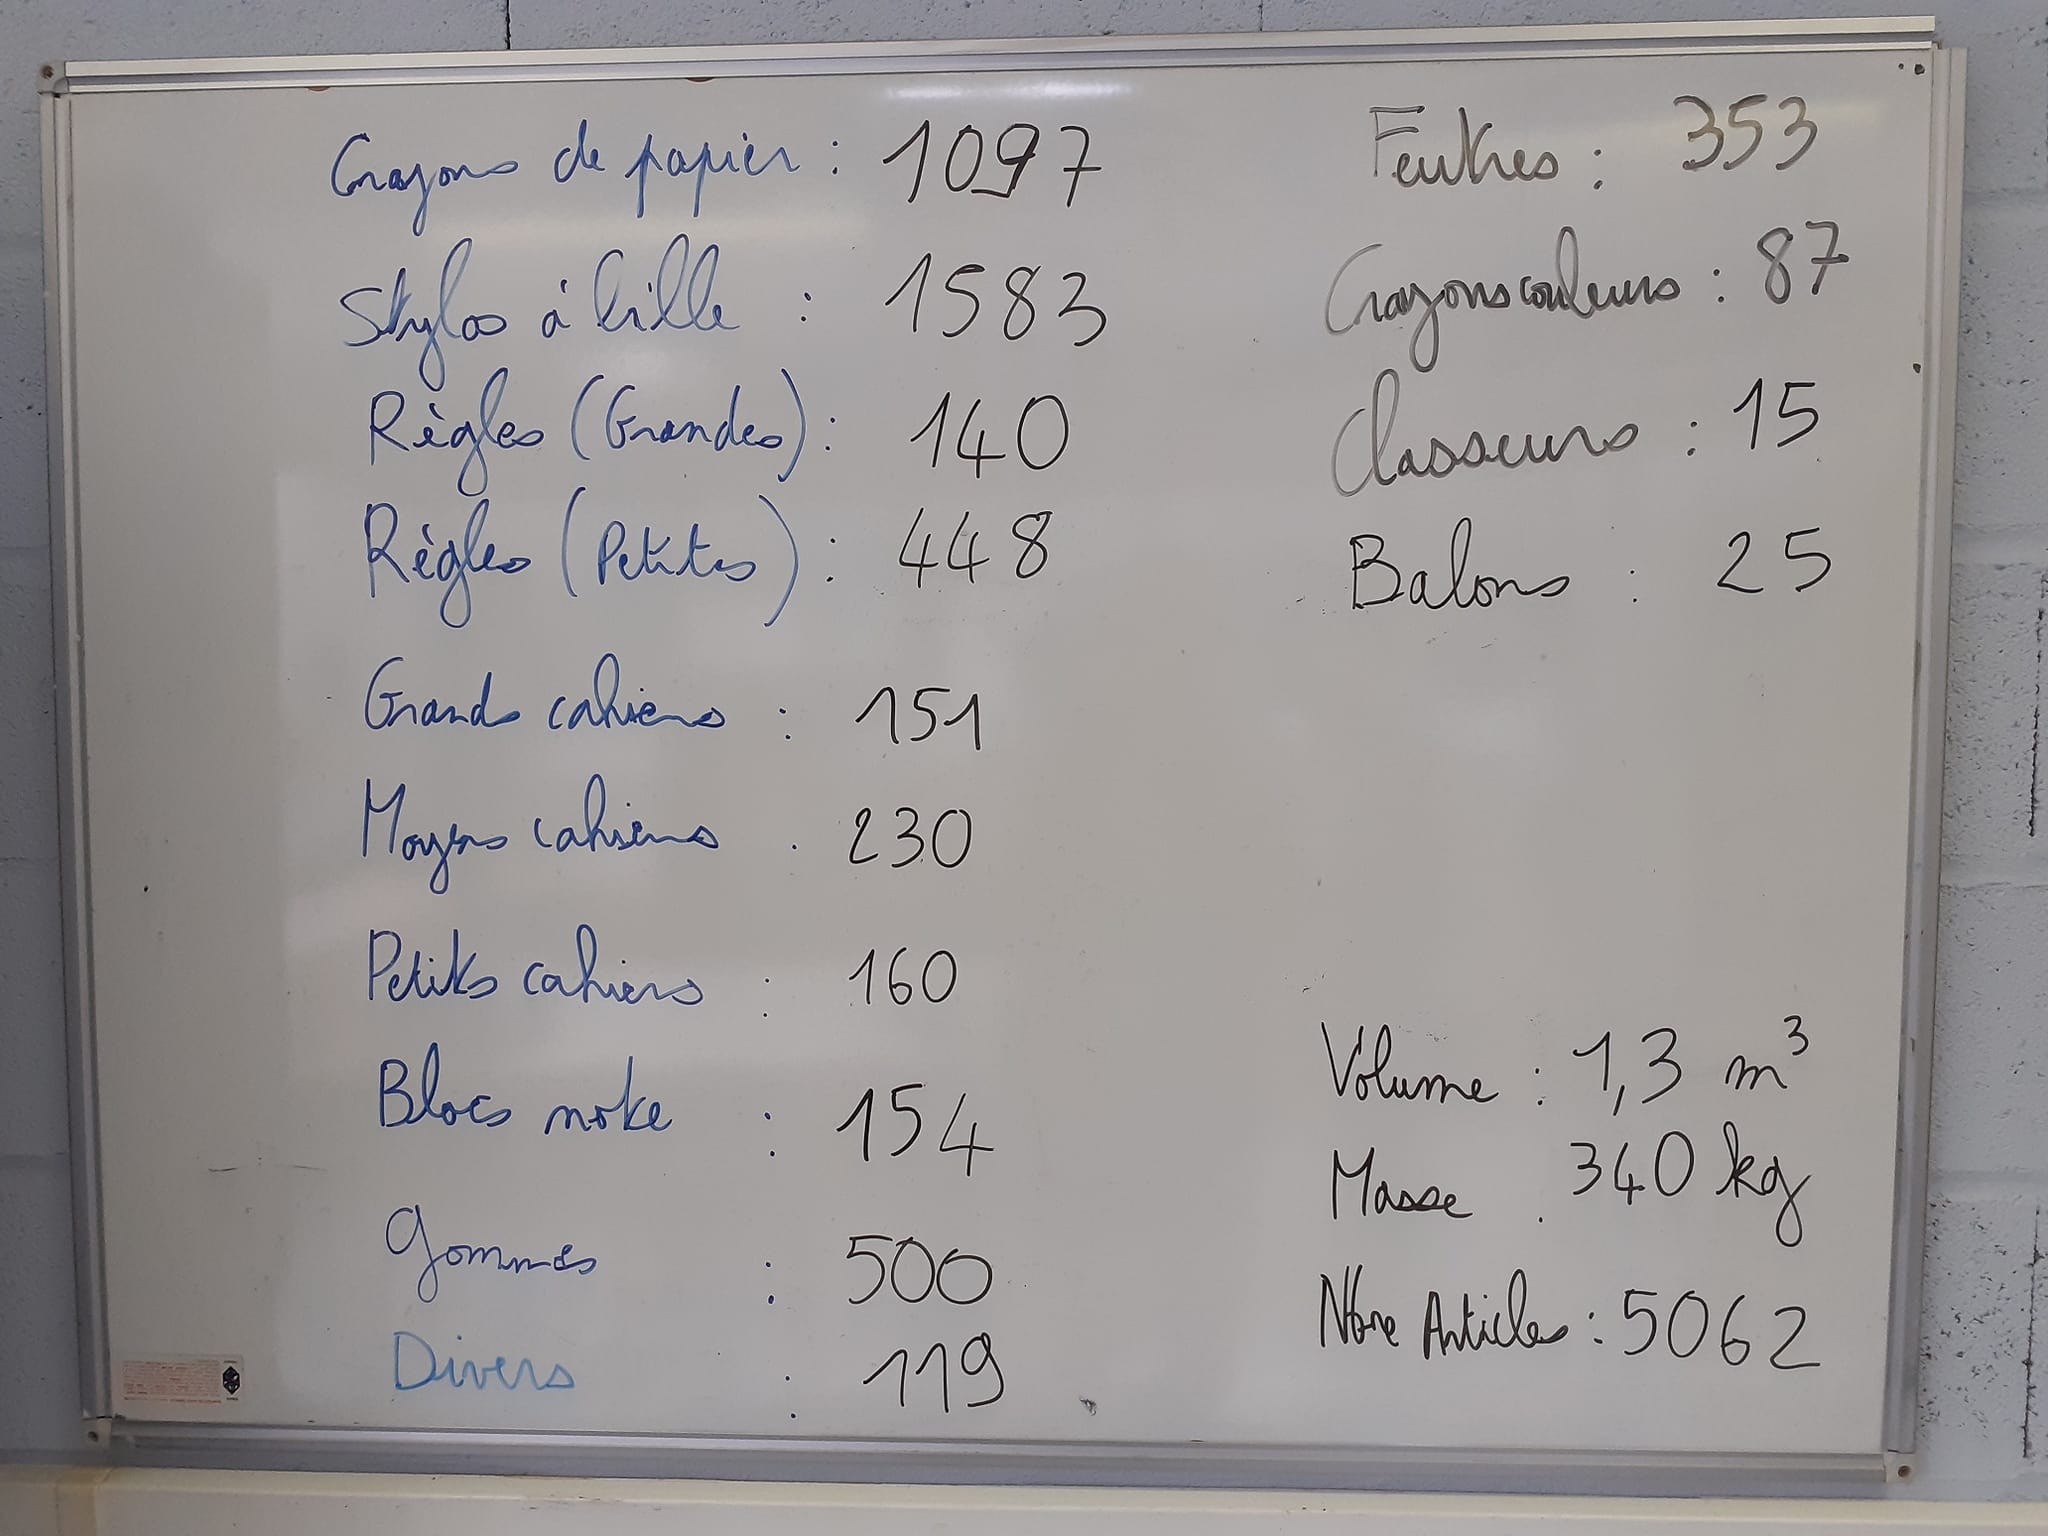 Crayons de papier : 1097
Stylos à bille : 1583
Règles (Grandes) : 140
Règles (Petites) : 448
Grands cahiers : 151
Moyens cahiers : 230
Petits cahiers : 160
Blocs note : 154
Gommes : 500
Divers : 119
Feutres : 353
Crayons couleurs : 87
Classeurs : 15
Balons : 25
Volume : 1,3 m³
Masse : 340 kg
Nbre Articles : 5062